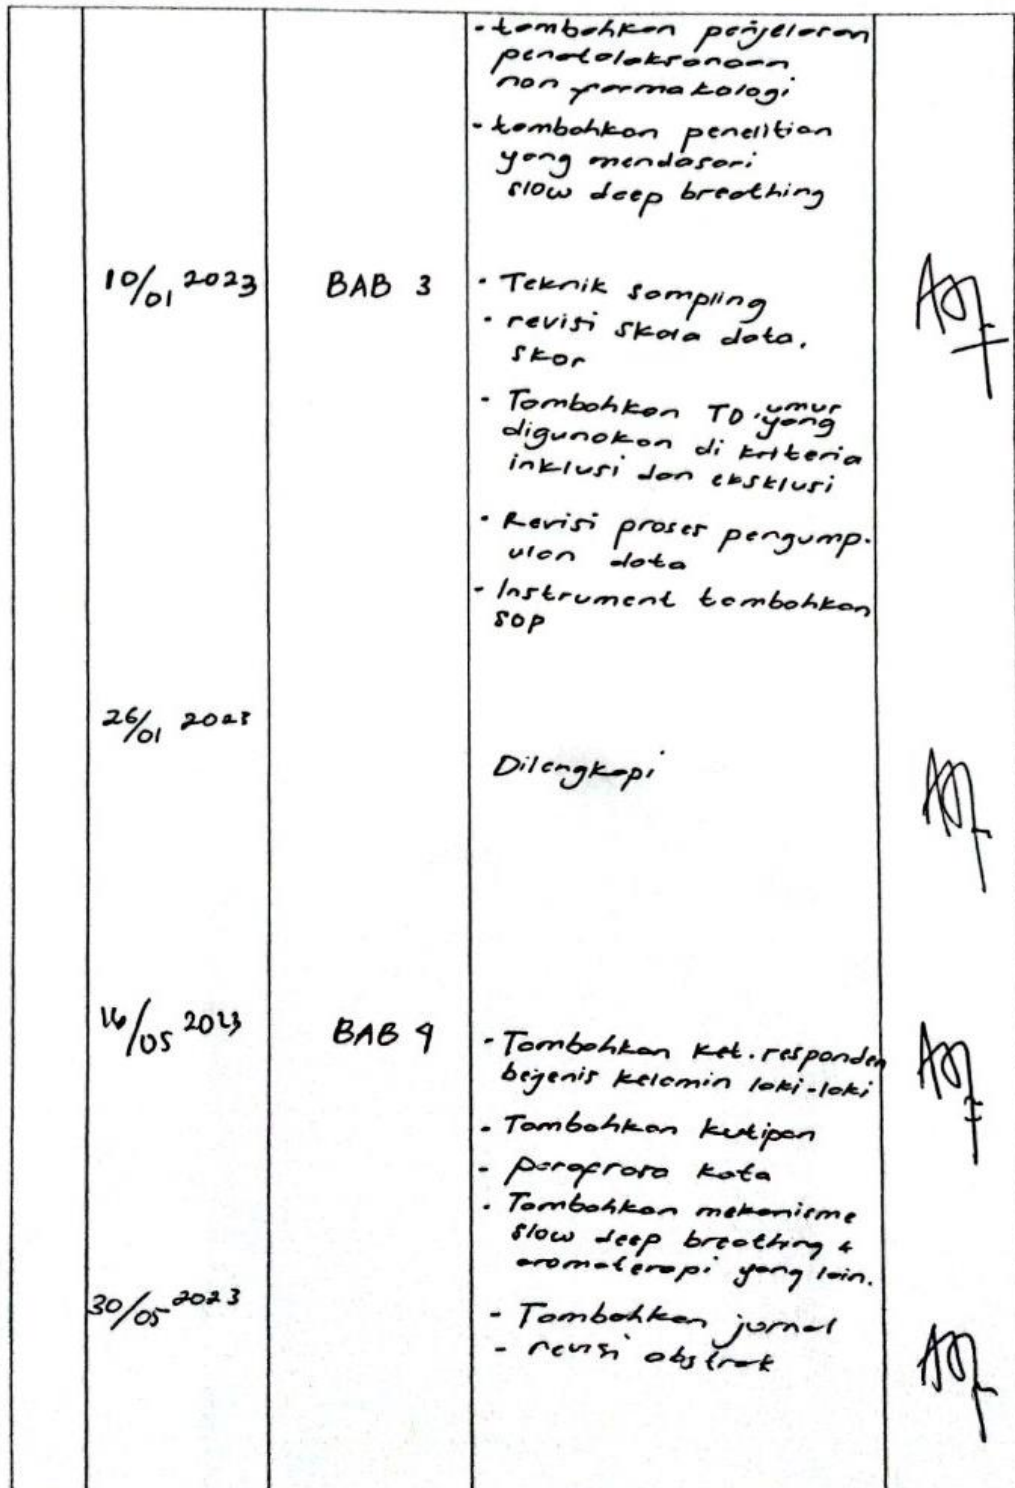 - tambahkan penjelasan
penatalaksanaan
non farmakologi
- tambahkan penelitian
yang mendasari
slow deep breathing
10/01 2023
BAB 3
- Teknik sampling
- revisi skala data,
skor
- Tambahkan TD, umur
yang
digunakan di kriteria
inklusi dan eksklusi
- Revisi proses pengump-
ulan data
- Instrument tambahkan
SOP
26/01 2023
Dilengkapi
16/05 2023
BAB 4
- Tambahkan ket. responden
bejenis kelamin laki-laki
- Tambahkan kutipan
- parafrasa kata
- Tambahkan mekanisme
slow deep breathing &
aromaterapi yang lain.
30/05 2023
- Tambahkan jurnal
- revisi abstrak